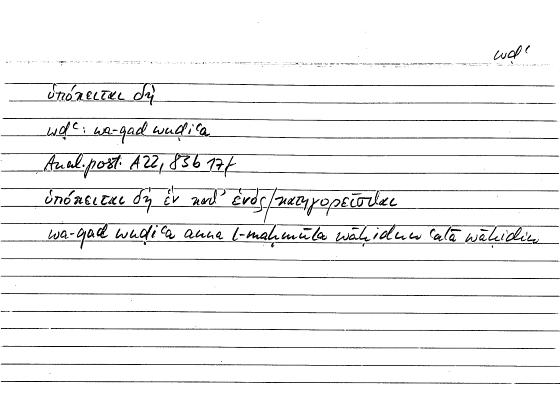 wḍʿ
ὑπόκειται δή
wḍʿ: wa-qad wuḍiʿa
Anal. post. A 22, 83b 17f
ὑπόκειται δὴ ἓν καθ' ἑνὸς/κατηγορεῖσθαι
wa-qad wuḍiʿa anna l-maḥmūla wāḥidun ʿalā wāḥidin